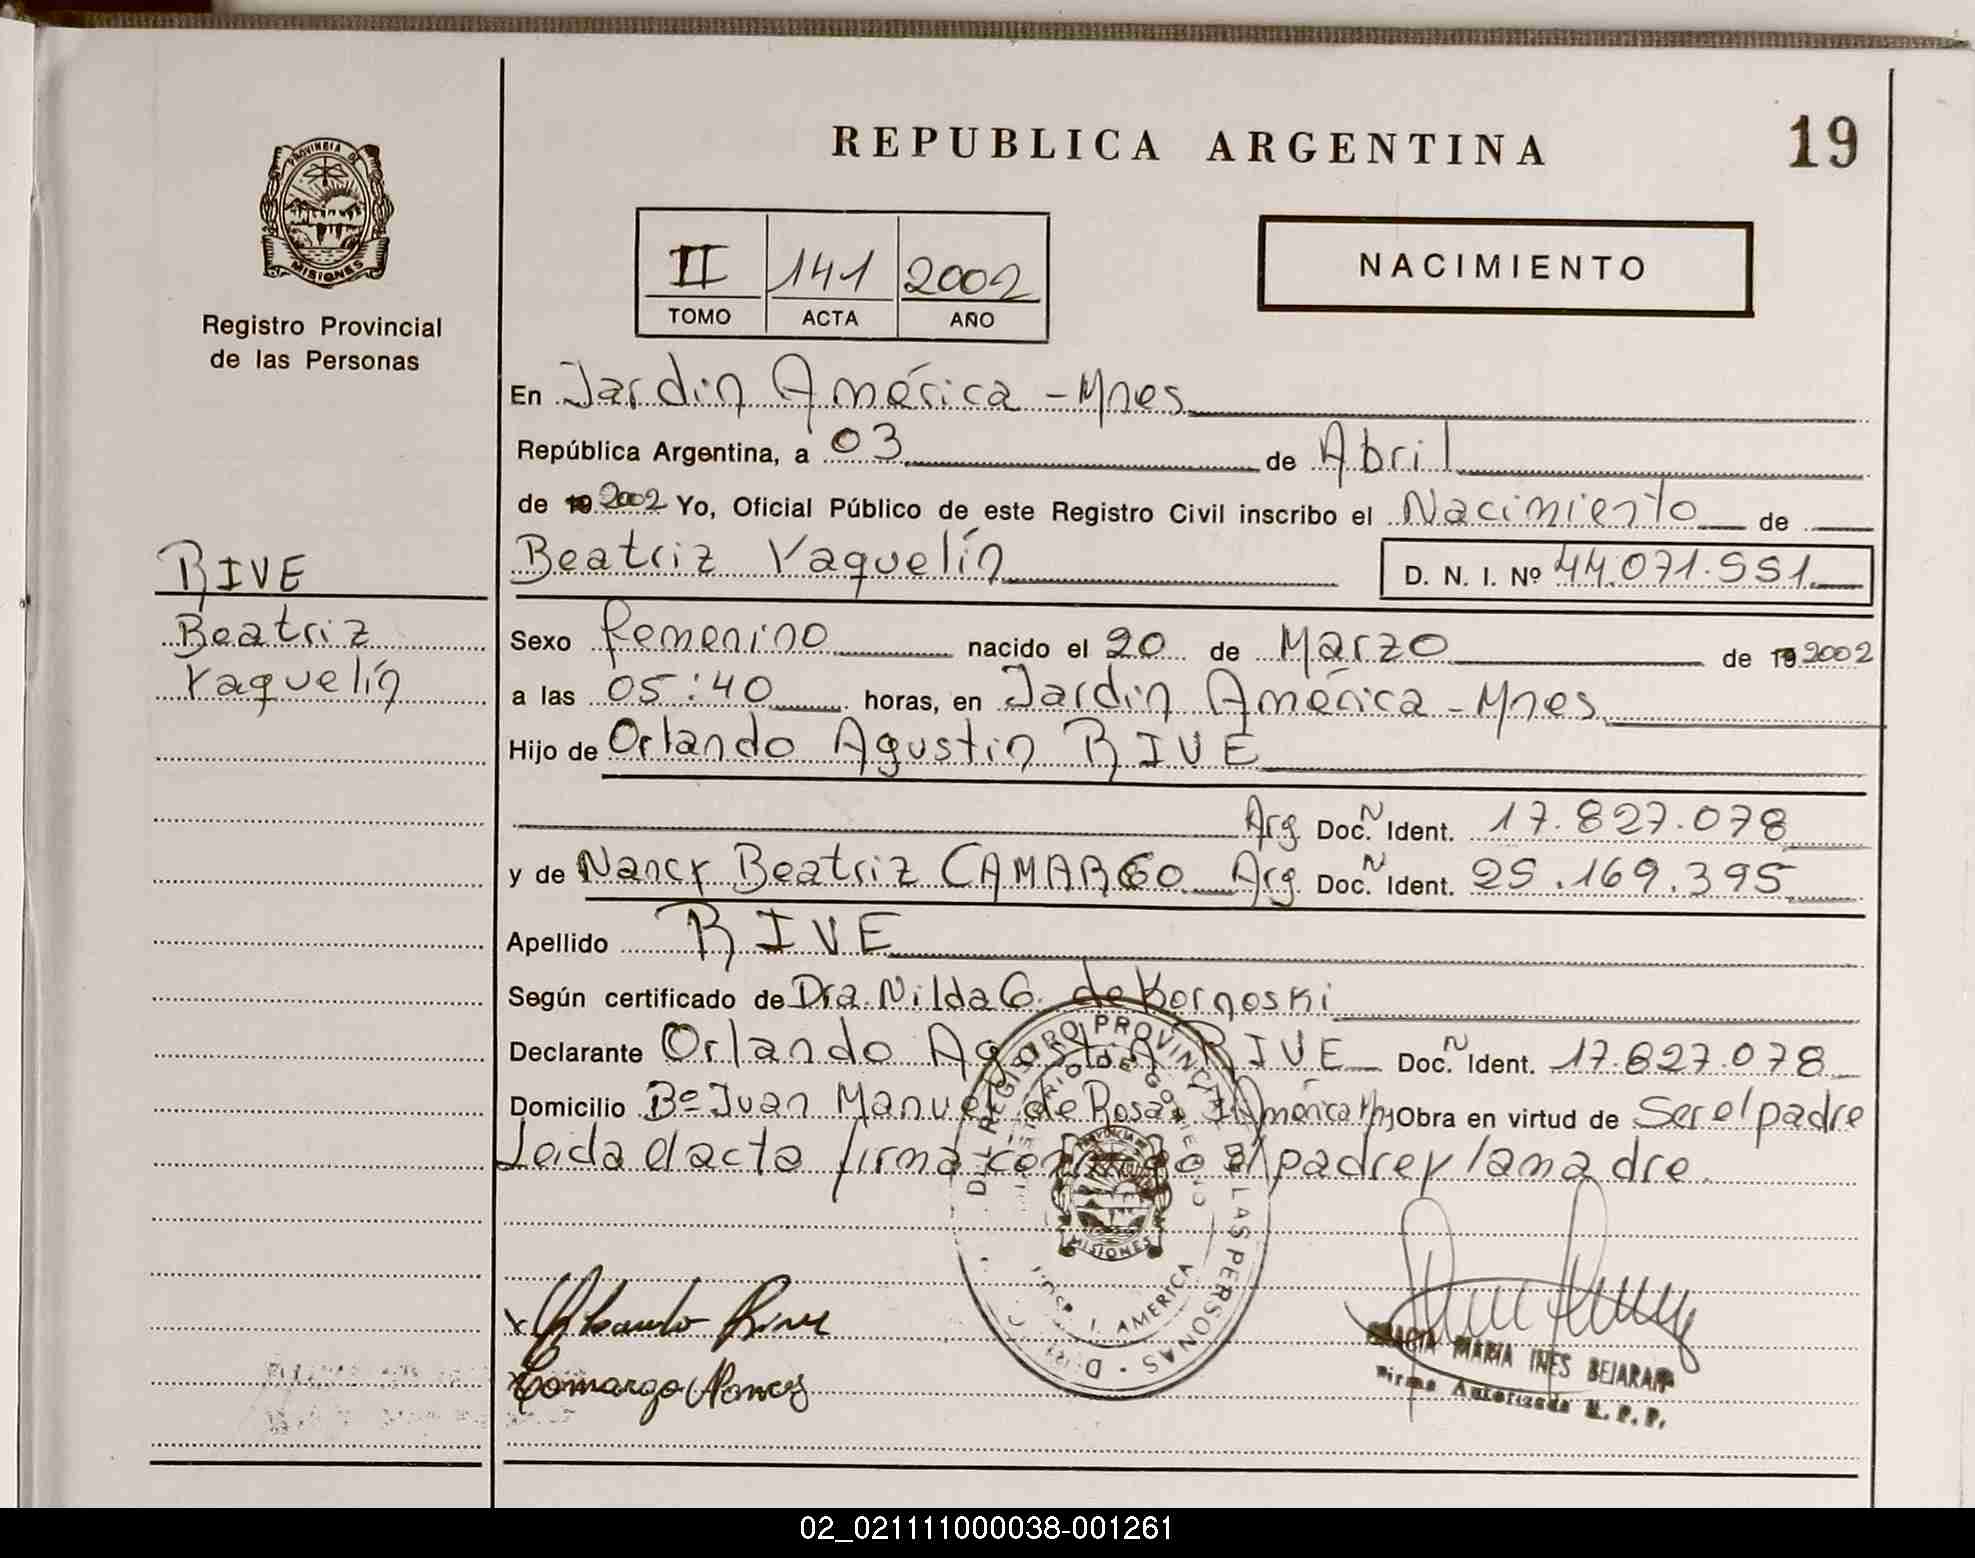 REPUBLICA ARGENTINA
19
PROVINCIA DE
MISIONES
Registro Provincial
de las Personas
II 141 2002
TOMO ACTA AÑO
NACIMIENTO
En Jardin América - Mnes
República Argentina, a 03 de Abril
de 19 2002 Yo, Oficial Público de este Registro Civil inscribo el Nacimiento de
Beatriz Yaquelín D. N. I. Nº 44.071.551
RIVE
Beatriz
Yaquelín
Sexo femenino nacido el 20 de Marzo de 19 2002
a las 05:40 horas, en Jardin América - Mnes
Hijo de Orlando Agustin RIVE
Arg Doc. N Ident. 17.827.078
y de Nancy Beatriz CAMARGO Arg Doc. N Ident. 25.169.395
Apellido RIVE
Según certificado de Dra. Nilda G. de Kornoski
Declarante Orlando Agustin RIVE Doc. N Ident. 17.827.078
Domicilio Bº Juan Manuel de Rosas J. América Mnes Obra en virtud de Ser el padre
Leida el acta firma conmigo el padre y la madre.
REGISTRO PROVINCIAL DE LAS PERSONAS
MINISTERIO DE GOBIERNO
MISIONES
HOSP. J. AMERICA
Orlando Rive
Camargo Nancy
MARIA INES BEJARAN
Firma Autorizada R. P. P.
02_021111000038-001261